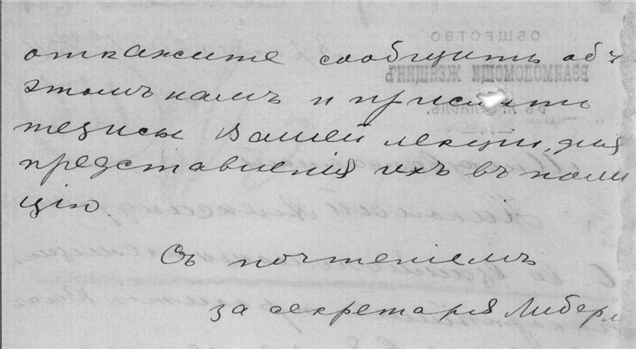 откажите сообщить объ
этомъ намъ и прислать
тезисы Вашей лекціи, для
представленія ихъ въ поли
цію.
Съ почтеніемъ
за секретаря Либерм
ОБЩЕСТВО
ВЗАИМОПОМОЩИ ЖЕНЩИНЪ